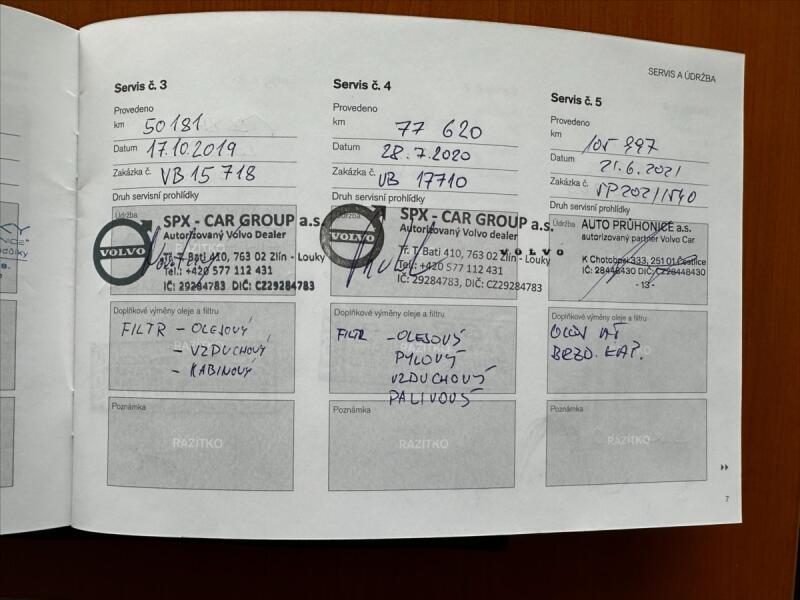 SERVIS A ÚDRŽBA
Servis č. 3
Provedeno
km 50181
Datum 17.10.2019
Zakázka č. VB 15 718
Druh servisní prohlídky
Údržba
VOLVO
SPX - CAR GROUP a.s.
Autorizovaný Volvo Dealer
Tř. T. Bati 410, 763 02 Zlín - Louky
Tel.: +420 577 112 431
IČ: 29284783, DIČ: CZ29284783
Doplňkové výměny oleje a filtru
FILTR - OLEJOVÝ
- VZDUCHOVÝ
- KABINOVÝ
Poznámka
RAZÍTKO
Servis č. 4
Provedeno
km 77 620
Datum 28.7.2020
Zakázka č. VB 17710
Druh servisní prohlídky
Údržba
VOLVO
SPX - CAR GROUP a.s.
Autorizovaný Volvo Dealer
Tř. T. Bati 410, 763 02 Zlín - Louky
Tel.: +420 577 112 431
IČ: 29284783, DIČ: CZ29284783
Doplňkové výměny oleje a filtru
FILTR - OLEJOVÝ
PYLOVÝ
VZDUCHOVÝ
PALIVOVÝ
Poznámka
RAZÍTKO
Servis č. 5
Provedeno
km
Datum 21.6.2021
Zakázka č.
Druh servisní prohlídky
Údržba
AUTO PRŮHONICE a.s.
autorizovaný partner Volvo Car
VOLVO
K Chotobuzi 333, 251 01 Čestlice
IČ: 28448430 DIČ: CZ28448430
- 13 -
Doplňkové výměny oleje a filtru
BRZD. KAP.
Poznámka
RAZÍTKO
7